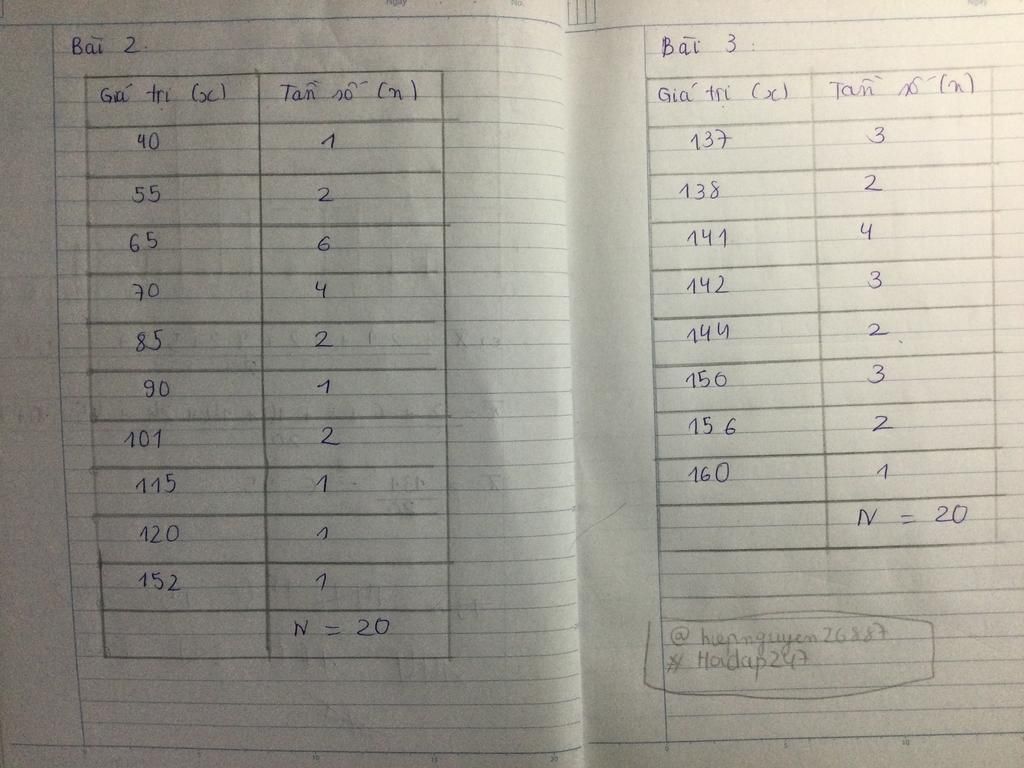 Bài 2.
Giá trị (x) Tần số (n)
40 1
55 2
65 6
70 4
85 2
90 1
101 2
115 1
120 1
152 1
N = 20
Bài 3:
Giá trị (x) Tần số (n)
137 3
138 2
141 4
142 3
144 2
150 3
156 2
160 1
N = 20
@ hiepnguyen26887
# Hoidap247